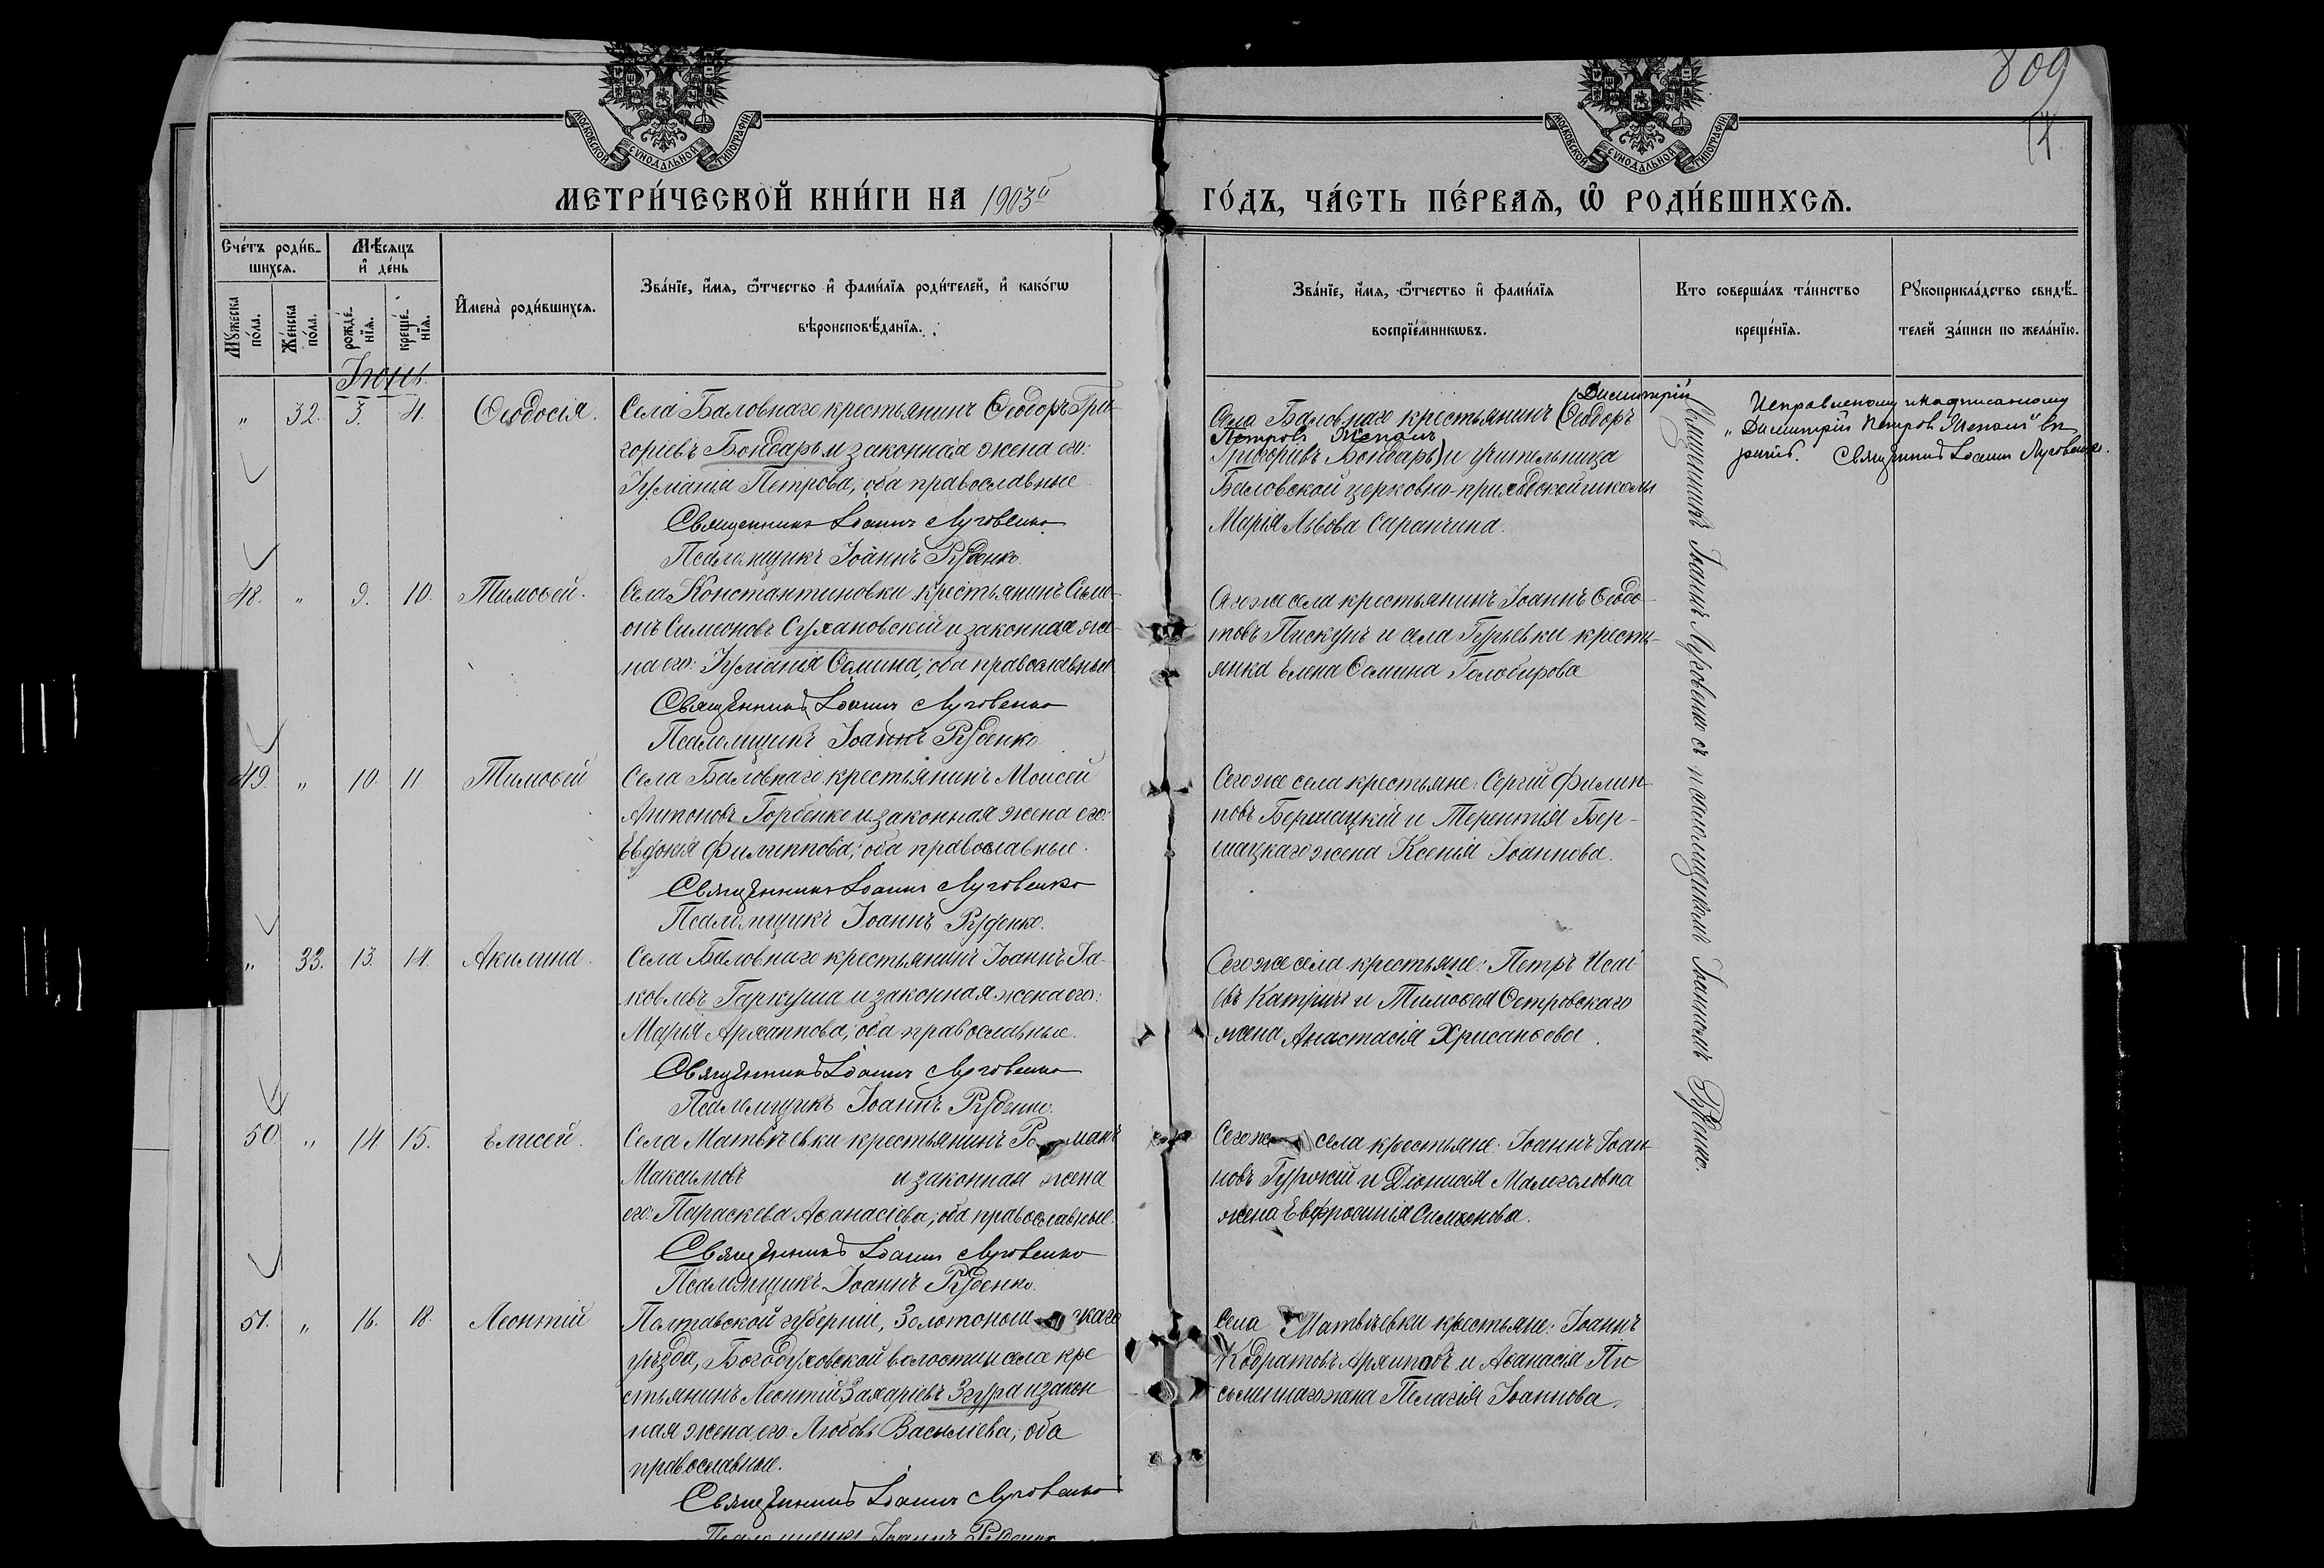 809
14
МОСКОВСКОЙ СѴНОДАЛЬНОЙ ТИПОГРАФІИ
МОСКОВСКОЙ СѴНОДАЛЬНОЙ ТИПОГРАФІИ
МЕТРИ́ЧЕСКОЙ КНИ́ГИ НА 1903й
ГО́ДЪ, ЧА́СТЬ ПЕ́РВАЯ, Ѡ҆ РОДИ́ВШИХСЯ.
Сче́тъ роди́в-
шихся.
Му́жеска по́ла.
Же́нска по́ла.
Мѣ́сяцъ
и҆ де́нь
рожде́-нїя.
креще́-нїя.
И҆мена̀ роди́вшихся.
Зва́нїе, и҆́мя, ѻ҆́тчество и҆ фами́лїя роди́телей, и҆ како́гѡ
вѣроисповѣ́данїя.
Зва́нїе, и҆́мя, ѻ҆́тчество и҆ фами́лїя
воспрїе́мникѡвъ.
Кто соверша́лъ та́инство
креще́нїя.
Рꙋкоприкла́дство свидѣ́-
телей за́писи по жела́нїю.
Іюнь.
„ 32. 3. 4. Ѳеодосія.
Села Баловнаго крестьянинъ Ѳеодоръ Гри-
горіевъ Бондарь и законная жена его:
Іуліанія Петрова; оба православные.
Священникъ Іоаннъ Луговенко
Псаломщикъ Іоаннъ Руденко.
(Димитрій
Села Баловнаго крестьянинъ Ѳеодоръ
Петровъ
Григоріевъ Бондарь) и учительница
Баловской церковно-приходской школы
Марія Львова Саранчина.
Исправленному и надписанному
„Димитрій Петровъ
Священникъ Іоаннъ Луговенко.
Священникъ Іоаннъ Луговенко съ псаломщикомъ Іоанномъ Руденко.
48. „ 9. 10. Тимоѳей.
Села Константиновки крестьянинъ Симе-
онъ Симеоновъ Сухановскій и законная же-
на его: Іуліанія Ѳомина; оба православные.
Священникъ Іоаннъ Луговенко
Псаломщикъ Іоаннъ Руденко.
Того же села крестьянинъ Іоаннъ Ѳеодо-
товъ Пискунъ и села Гурьевки кресть-
янка Елена Ѳомина Голобирова
49. „ 10 11. Тимоѳей
Села Баловнаго крестьянинъ Моисей
Антоновъ Горбенко и законная жена его:
Евдокія Филиппова; оба православные.
Священникъ Іоаннъ Луговенко
Псаломщикъ Іоаннъ Руденко.
Сего же села крестьяне: Сергій Филип-
повъ Бершацкій и Терентія Бер-
шацкаго жена Ксенія Іоаннова.
„ 33. 13. 14. Акилина.
Села Баловнаго крестьянинъ Іоаннъ Іа-
ковлевъ Гаркуша и законная жена его:
Марія Архиппова; оба православные.
Священникъ Іоаннъ Луговенко
Псаломщикъ Іоаннъ Руденко.
Сего же села крестьяне: Петръ Исаі-
евъ Катричъ и Тимоѳея Островскаго
жена Анастасія Хрисанѳова.
50. „ 14 15. Елисей.
Села Матвѣевки крестьянинъ Романъ
Максимовъ и законная жена
его: Параскева Аѳанасіева; оба православные.
Священникъ Іоаннъ Луговенко
Псаломщикъ Іоаннъ Руденко.
Сего же села крестьяне: Іоаннъ Іоан-
новъ Гурскій и Діонисія Малоголовка
жена Евфросинія Симеонова.
51. „ 16. 18. Леонтій
Полтавской губерніи, Золотоношскаго
уѣзда, Богодуховской волости и села кре-
стьянинъ Леонтій Захаріевъ Згура и закон-
ная жена его: Любовь Васильева; оба
православные.
Священникъ Іоаннъ Луговенко
Псаломщикъ Іоаннъ Руденко
Села Матвѣевки крестьяне: Іоаннъ
Кодратовъ Архиповъ и Аѳанасія Пи-
сьменнаго жена Пелагія Іоаннова.